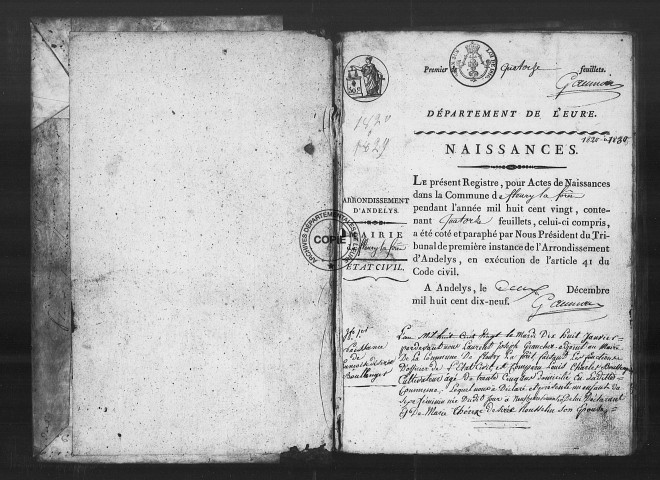 Premier quatorze feuillets.
1820
1829
DÉPARTEMENT DE L'EURE.
1820-1830
NAISSANCES.
ARRONDISSEMENT
D'ANDELYS.
MAIRIE
de fleury la forêt
ÉTAT CIVIL.
ARCHIVES DÉPARTEMENTALES DE L'EURE
COPIE
LE présent Registre, pour Actes de Naissances
dans la Commune de fleury la forêt
pendant l'année mil huit cent vingt, conte-
nant quatorze feuillets, celui-ci compris,
a été coté et paraphé par Nous Président du Tri-
bunal de première instance de l'Arrondissement
d'Andelys, en exécution de l'article 41 du
Code civil.
A Andelys, le deux Décembre
mil huit cent dix-neuf.
Naissance
de
Boullenger
L'an mil huit cent vingt le mardi dix huit janvier
pardevant nous Laurent Joseph adjoint au Maire
De La Commune de fleury La forêt faisant Les fonctions
D'officier de L'Etat Civil est Comparu Louis Charles
Cultivateur âgé de trente cinq ans domicilié en La dite
Commune, lequel nous a Déclaré et présenté un enfant du
sexe féminin née Du dit jour à heures De lui Déclarant
et de Marie Désirée Rousselin son épouse